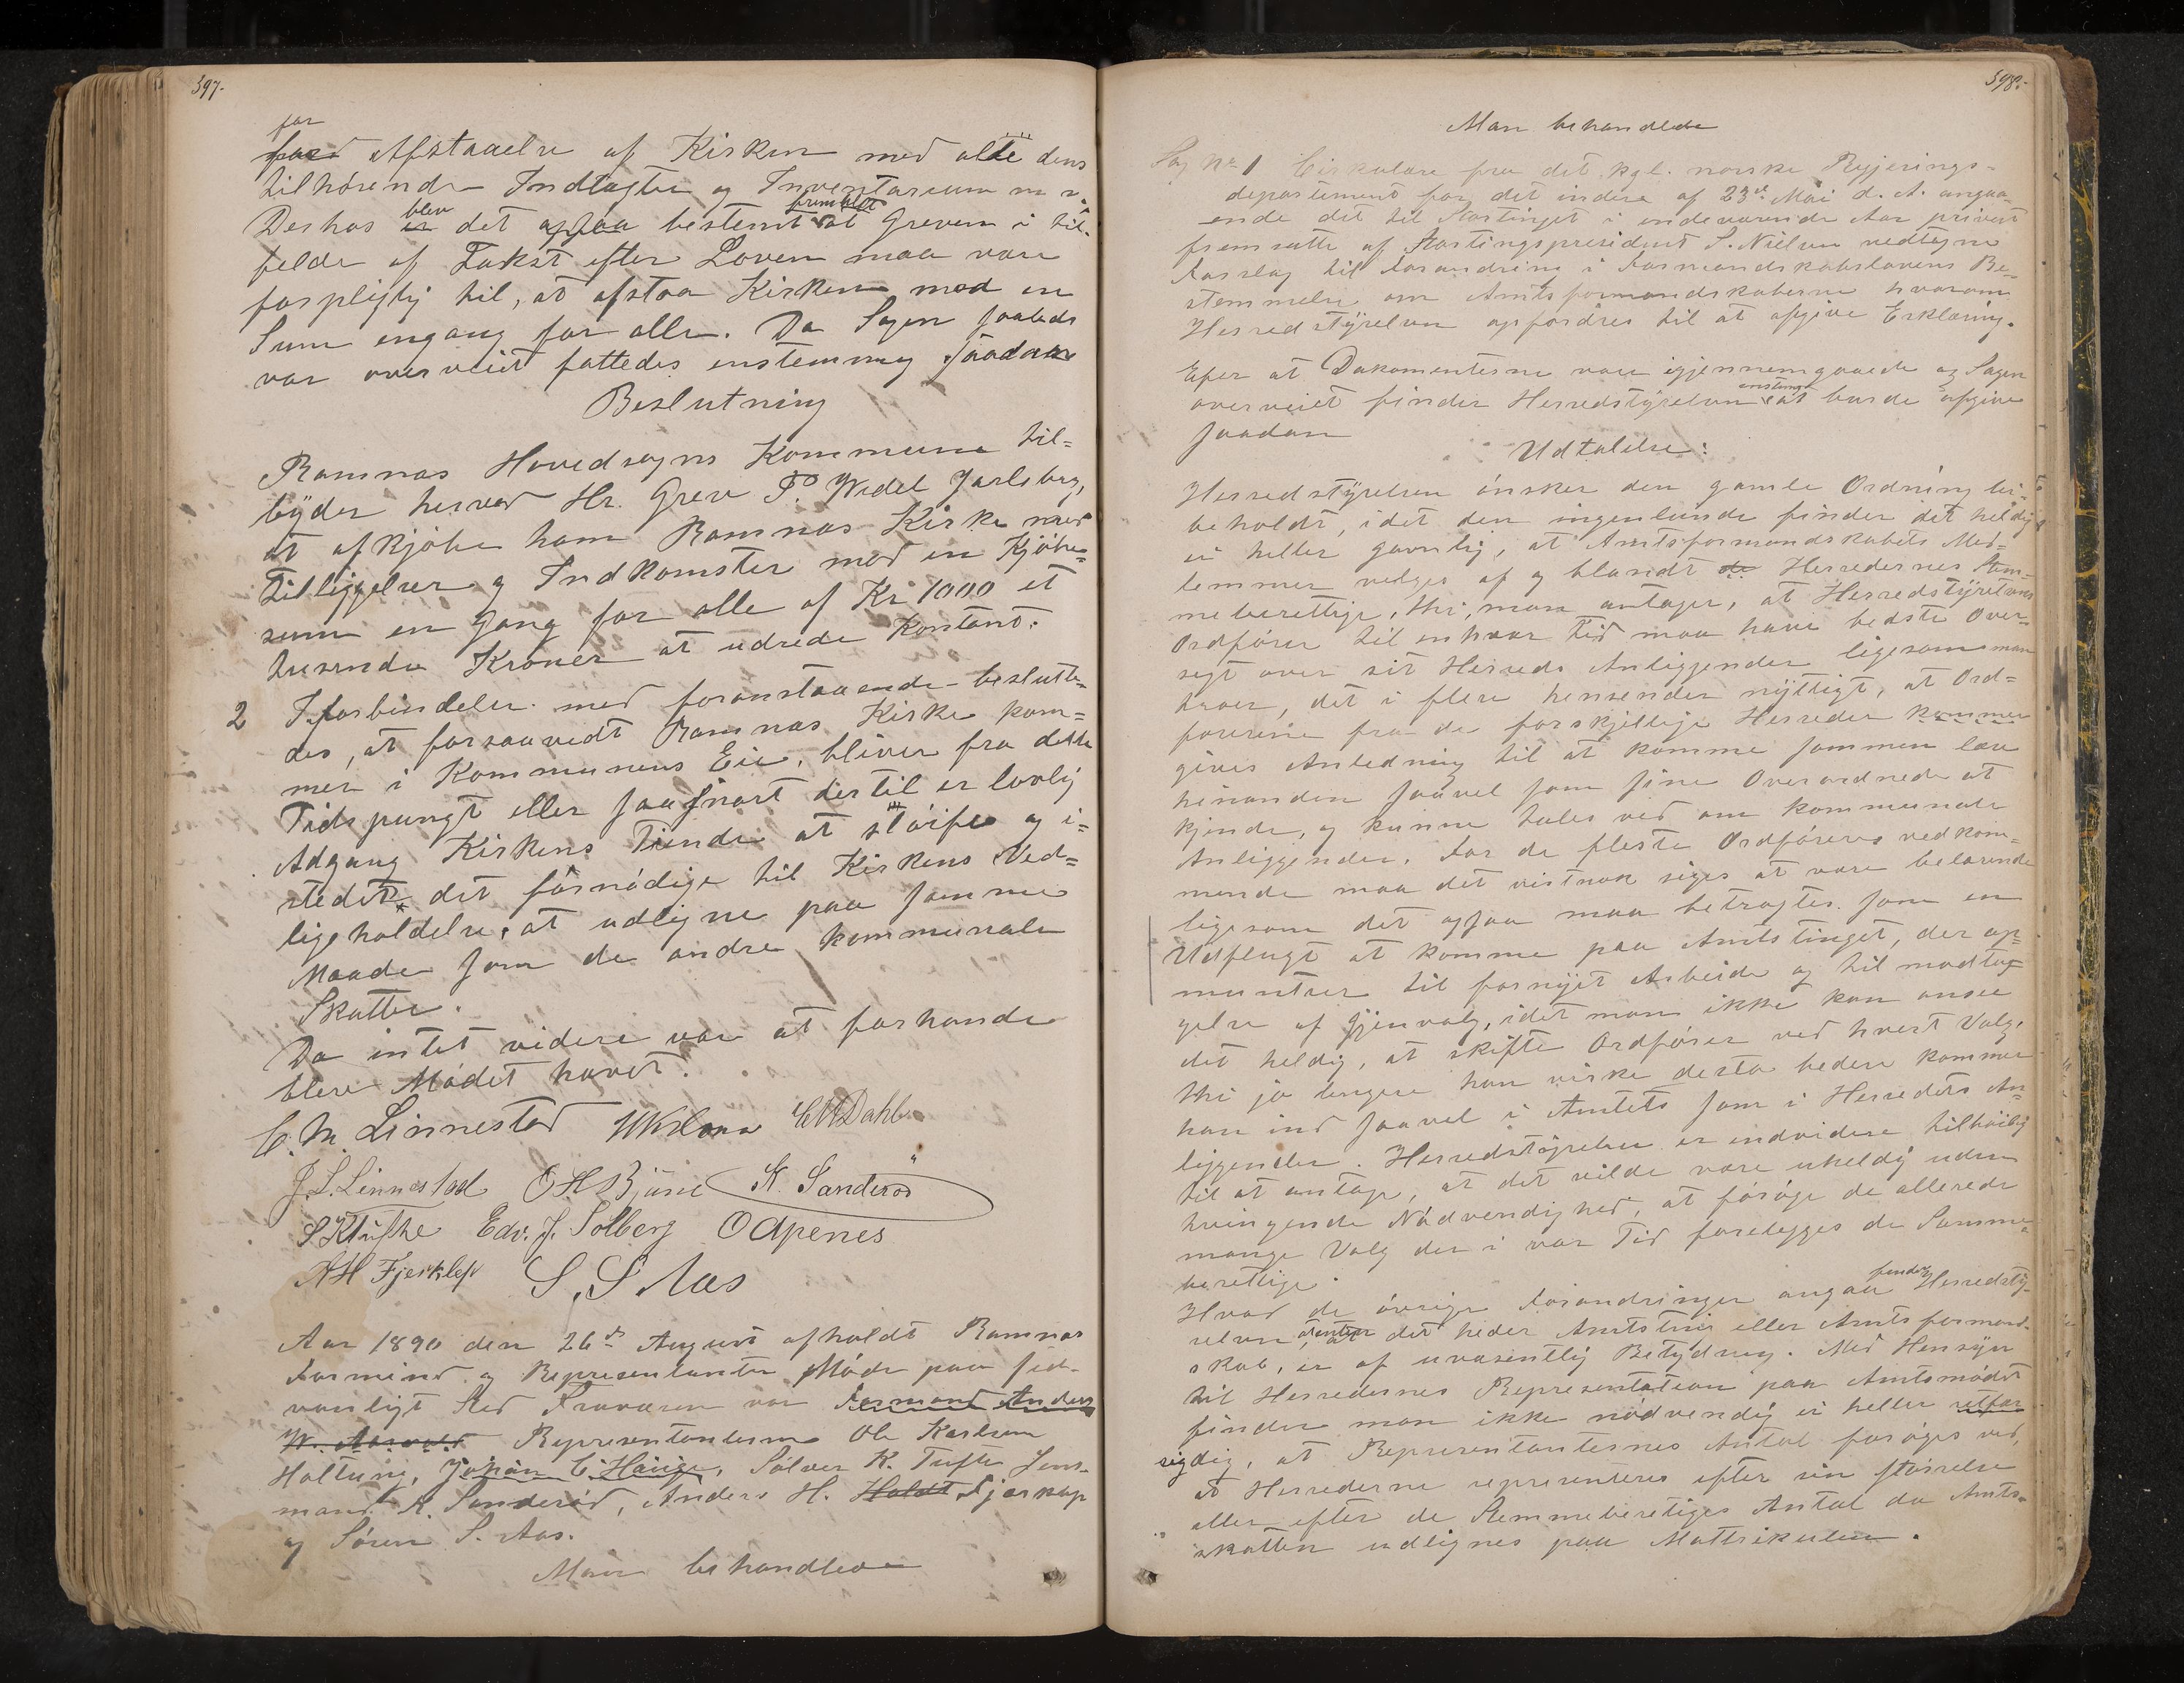 597.
for
ford Afstaaelse af Kirken med alle dens
tilhörende Indtægter og Inventarium m.v.
blev fremholdt
Deshos er det ogsaa bestemt at Greven i til-
felde af Takst efter Loven maa være
forpligtig til, at afstaa Kirken mod en
Sum engang for alle. Da Sagen saaledes
var overveiet fattedes enstemmig saadan
Beslutning
Ramnæs Hovedsogns Kommune til=
byder herved Hr. Greve P. Wedel Jarlsberg,
at afkjöbe ham Ramnæs Kirke med
Tilliggelser og Indkomster mod en Kjöbe=
sum en Gang for alle af Kr 1000 et
tusende Kroner at udrede Kontant.
2 I forbindelse med foranstaaende beslutte-
des, at forsaavidt Ramnæs Kirke kom=
mer i Kommunens Eie, bliver fra dette
Tidspungt eller saasnart dertil er lovlig
Adgang Kirkens Tiende at slöife og i=
stedet det fornödige til Kirkens Ved=
ligeholdelse, at udligne paa samme
Maade som de andre kommunale
Skatter.
Da intet videre var at forhandle
blev Mödet hævet.
C. M. Linnestad
J. L. Linnestad O H Bjune K. Sanderöd
S K Tufte Edv. J. Solberg O Apenes
A H Fjerklep S. S Aas
Aar 1890 den 26de August afholdt Ramnæs
Formænd og Representanter Möde paa sed-
vanligt Sted Fraværen var Formand Anders
W. Representanterne Ole Karlsen
Holtung, Johan C. Hauge, Sölver K. Tufte Jens-
mand K. Sanderöd, Anders H. Holdt Fjærkep
og Sören S. Aas.
Man behandlede
598.
Man behandlede
Sag No 1 Cirkulære fra det kgl. norske Regjerings-
departement for det indere af 23de Mai d. A. angaa-
ende det til Stortinget i indeværende Aar privat
fremsatte af Stortingspresident S. Nielsen vedtagne
Forslag til Forandring i Formandskabslovens Be-
stemmelse om Amtsformandskaberne hvorom
Herredstyrelsen opfordres til at afgive Erklæring.
Efter at Dokumenterne vare igjennemgaaede og Sagen
enstemig
overveiet finder Herredstyrelsen at burde afgive
saadan
Udtalelse:
Herredstyrelsen önsker den gamle Ordning bi-
beholdt, idet den ingenlunde finder det heldigt
ei heller gavnlig, at Amtsformandskabets Med=
lemmer velges af og blandt de Herredernes Stem-
meberettige, thi, man antager, at Herredstyrelsens
Ordförer til enhver Tid maa have bedste Over-
sigt over sit Herreds Anliggender ligesom man
troer, det i flere hensender nyttigt, at Ord=
förerne fra de forskjellige Herreder kommer
gives Anledning til at komme sammen lære
hinanden saavel som sine Overordnede at
kjende, og kunne tales ved om kommunale
Anliggender. For de fleste Ordföreres vedkom=
mende maa det vistnok siges at være belærende
ligesom det ogsaa maa betragtes som en
Udflugt at komme paa Amtstinget, der op=
muntrer til fornyet Arbeide og til modtag
gelse af Gjenvalg, idet man ikke kan ansee
det heldig, at skifte Ordförer ved hvert Valg,
thi jo lengere han virke desto bedere kommer
han ind saavel i Amtets som i Herredets An=
liggender. Herredstyrelsen er endvidere tilböilig
til at antage, at det vilde være uheldig uden
tvingende Nödvendighed, at foröge de allerede
mange Valg der i vor Tid forelegges de Stemme-
berettige.
finder
Hvad de övrige Forandringer angaa Herredsty-
relsen, at det heder Amtsting eller Amtsformand-
skab, er af uvæsentlig Betydning. Med Hensyn
til Herredernes Representation paa Amtsmödet
finder man ikke nödvendig ei heller retfær
rigdig, at Representanternes Antal foröges ved,
at Herrederne representeres efter sin störrelse
eller efter de Stemmeberetiges Antal da Amts-
skatten udlignes paa Mattrikulen.